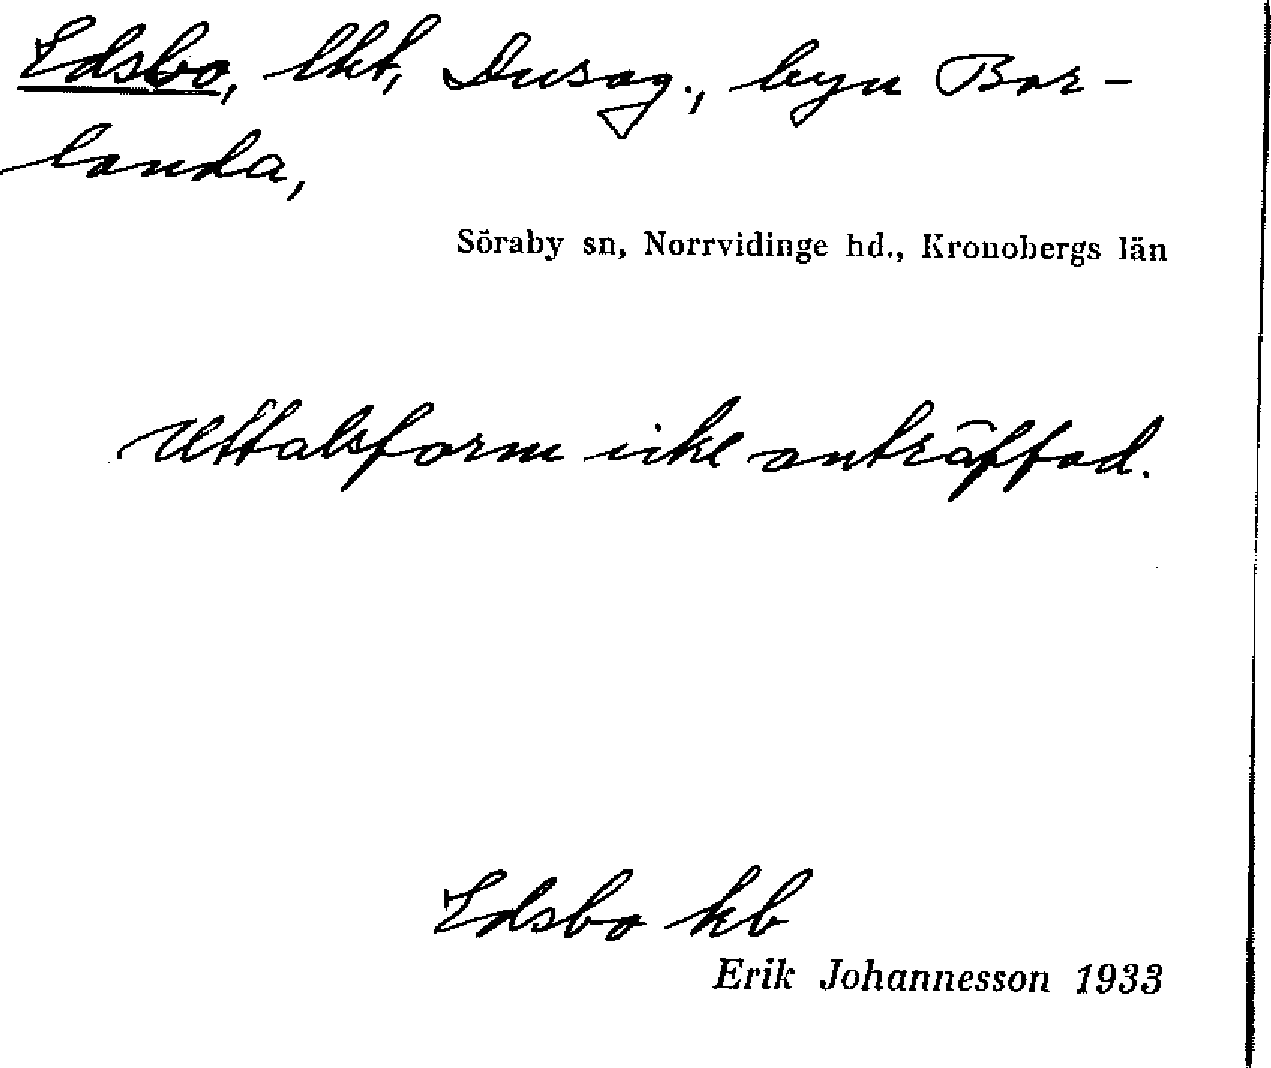 Edsbo, lht, Ausag., byn Bor-
landa,
Söraby sn, Norrvidinge hd., Kronobergs län
Uttalsform icke anträffad.
Edsbo kb
Erik Johannesson 1933